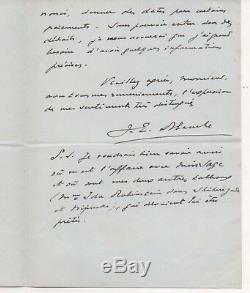 moi, donner des dates pour certains
paiements. Sans pouvoir entrer dans des
détails, je vous avouerai que j'ai grand
besoin d'avoir quelques informations
précises.
Veuillez agréer, Monsieur,
avec mes remerciements, l'expression
de mes sentiments très distingués
J. E. Blanche
P.S. Je voudrais bien savoir aussi
où en est l'affaire avec Miss Sage
et où sont mes deux autres tableaux
(Mme Ida Rubinstein dans Shéhérazade
et Nijinski), qui devaient lui être
prêtés.